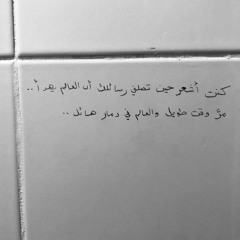 كنت أشعر حين تصلني رسائلك أن العالم يهدأ..
مرّ وقت طويل والعالم في دمار هائل ..